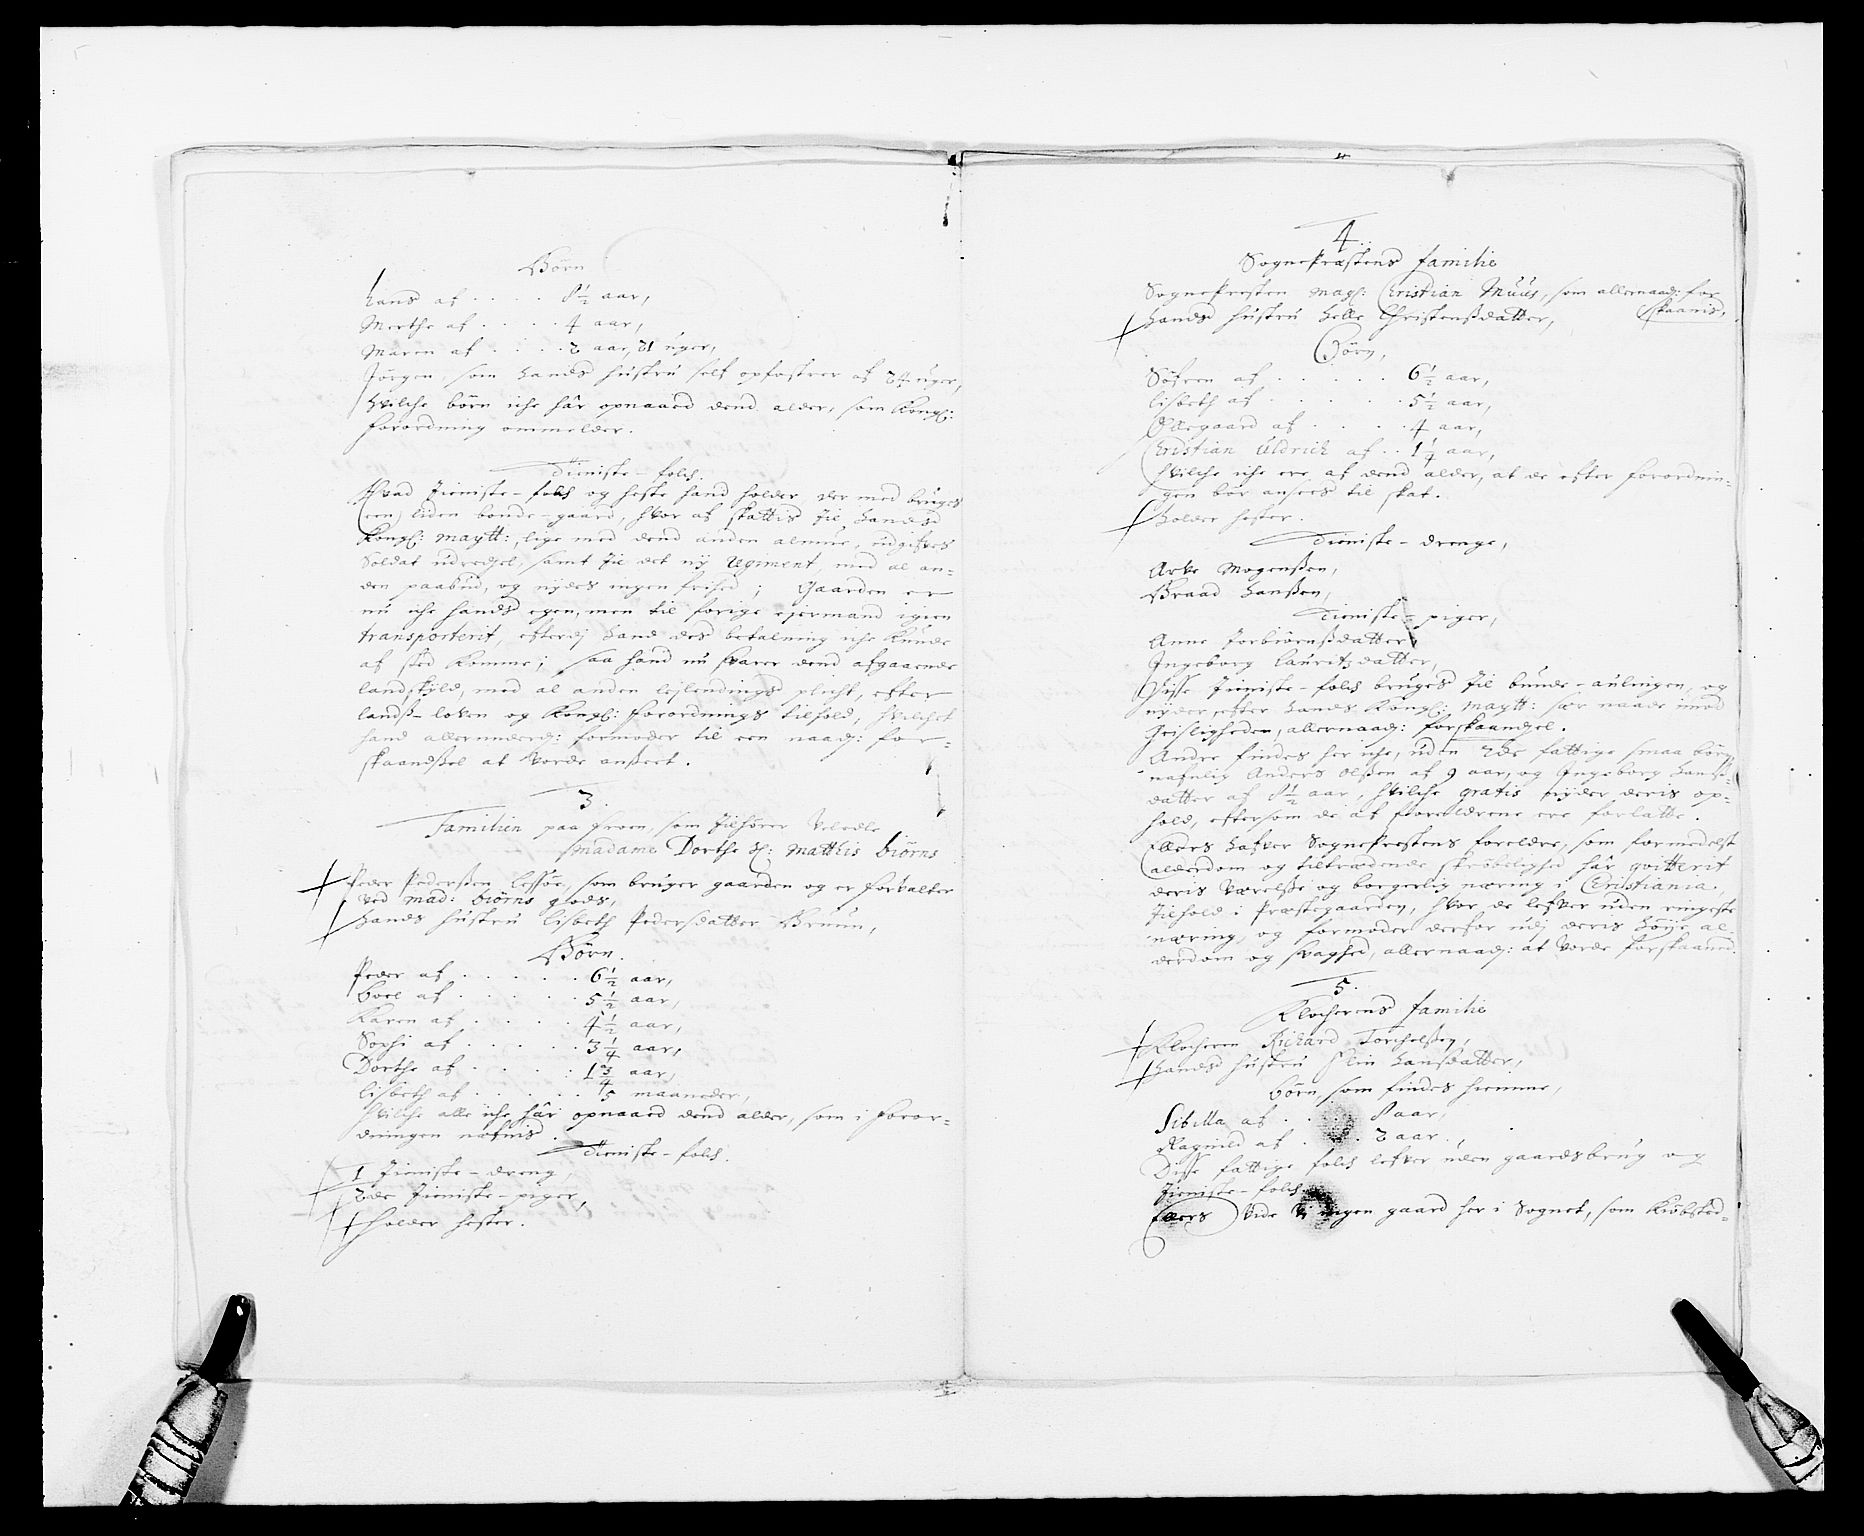 Börn
Hans af . . . . 8½ aar,
Merthe af . . . . 4 aar,
Maren af . . . . 2 aar, 21 uger,
Jörgen, som hands hustru self opfostrer af 24 uger,
hvilche börn iche här opnaaed dend alder, som Kongl:
forordning ommelder.
Tieniste-folch.
Hvad Tieniste-folch og heste hand holder, der med bruges
een liden bonde-gaard, hvor af skattis til hands
Kongl: Maytt:, lige med dend anden almue, udgifves
Soldat udredsel, samt til det ny Regiment, med al an-
den paabud, og nydes ingen frihed; Gaarden er
nu iche hands egen, men til forige ejermand igien
transporterit, efterdj hand des betaling iche kunde
af sted komme; saa hand nu svarer dend afgaaende
landskyld, med al anden lejlendings plicht, efter
lands-loven og Kongl: forordnings tilhold, hvilchet
hand allerunderd: formoder til een naad: for-
skaandsel at vorde anseet.
3.
Familien paa Froen, som tilhörer Veledle
Madame Dorthe Sl: Matthis Biörns
Peder Pedersen Lessöe, som bruger gaarden og er forvalter
ved Mad: Biörns gods,
Hands hustru Lisbeth Pedersdatter Bruun,
Börn.
Peder af . . . . . 6½ aar,
Boel af . . . . . 5½ aar,
Karen af . . . . . 4½ aar,
Sophi af . . . . . 3¼ aar,
Dorthe af . . . . . 1¾ aar,
Lisbeth af . . . . . 5 maaneder,
Hvilche alle iche här opnaaed dend alder, som i foror-
dningen nefnis.
Tieniste-folch.
1 Tieniste-dreng,
2de Tieniste-piger,
Holder hester.
4.
Sognepræstens familie
Sognepresten Mag: Cristian Muus, som allernaad: for
skaanis,
Hands hustru Helle Christensdatter,
Börn,
Söfren af . . . . . 6½ aar,
Lisbeth af . . . . . 5½ aar,
Ollegaard af . . . . 4 aar,
Cristian Uldrich af . . 1¼ aar,
Hvilche iche ere af dend alder, at de efter forordnin-
gen bör ansees til skat.
Holder hester.
Tieniste-drenge,
Arve Mogensen,
Braad Hansen,
Tieniste-piger,
Anne Torbiörnsdatter,
Ingeborg Lauritzdatter,
Disse Tieniste-folch bruges til bunde-aulingen, og
nyder efter hands Kongl: Maytt: sær naade mod
Geistligheden, allernaad: forskaandsel.
Andre findes her iche, uden 2de fattige smaa börn
nafnlig Anders Olsen af 9 aar, og Ingeborg Hans-
datter af 8½ aar, hvilche gratis nyder deris op-
hold, eftersom de af foreldrene ere forlatte.
Ellers hafver Sognepræstens foreldre, som formedelst
alderdom og tiltrædende skröbelighed här qvitterit
deris værelse og borgerlig næring i Cristiania,
Tilhold i Præstegaarden, hvor de lefver uden ringeste
næring, og formoder derfor udj deris höye al-
derdom og svaghed, allernaad: at vorde forskaaned.
5.
Klocherens familie
Klocheren Richard Torchelsen,
Hands hustru Elin Hansdatter,
Börn, som findes hiemme,
Sibilla af . . . . 8 aar,
Ragnild af . . . . 2 aar.,
Disse fattige folch lefver uden gaardsbrug og
Tieniste-folch.
Ellers vide vi ingen gaard her i Sognet, som Kiöbsted-